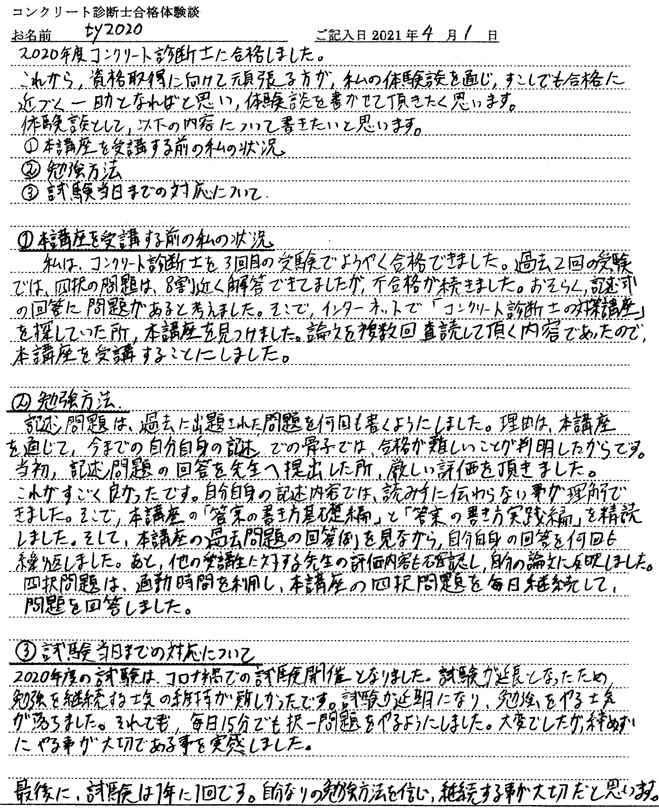 コンクリート診断士合格体験談
お名前 ty2020 ご記入日 2021年 4 月 1 日
2020年度コンクリート診断士に合格しました。
これから、資格取得に向けて頑張る方が、私の体験談を通じ、すこしでも合格に
近づく一助となればと思い、体験談を書かせて頂きたく思います。
体験談として、以下の内容について書きたいと思います。
①本講座を受講する前の私の状況
②勉強方法
③試験当日までの対応について
①本講座を受講する前の私の状況
私は、コンクリート診断士を3回目の受験でようやく合格できました。過去2回の受験
では、四択の問題は、8割近く解答できてましたが、不合格が続きました。おそらく、記述式
の回答に問題があると考えました。そこで、インターネットで「コンクリート診断士の対策講座」
を探していった所、本講座を見つけました。論文を複数回査読して頂く内容であったので、
本講座を受講することにしました。
②勉強方法.
記述問題は、過去に出題された問題を何回も書くようにしました。理由は、本講座
を通じて、今までの自分自身の記述での骨子では、合格が難しいことが判明したからです。
当初、記述問題の回答を先生へ提出した所、厳しい評価を頂きました。
これがすごく良かったです。自分自身の記述内容では、読み手に伝わらない事が理解で
きました。そこで、本講座の「答案の書き方基礎編」と「答案の書き方実践編」を精読
しました。そして、本講座の過去問題の回答例を見ながら、自分自身の回答を何回も
繰り返しました。あと、他の受講生に対する先生の評価内容も確認し、自分の論文に反映しました。
四択問題は、通勤時間を利用し、本講座の四択問題を毎日継続して、
問題を回答しました。
③試験当日までの対応について
2020年度の試験は、コロナ禍での試験開催となりました。試験が延長となったため、
勉強を継続する士気の維持が難しかったです。試験が延期になり、勉強をやる士気
が落ちました。それでも、毎日15分でも択一問題をやるようにしました。大変でしたが、諦めずに
にやる事が大切である事を実感しました。
最後に、試験は1年に1回です。自分なりの勉強方法を信じ、継続する事が大切だと思います。